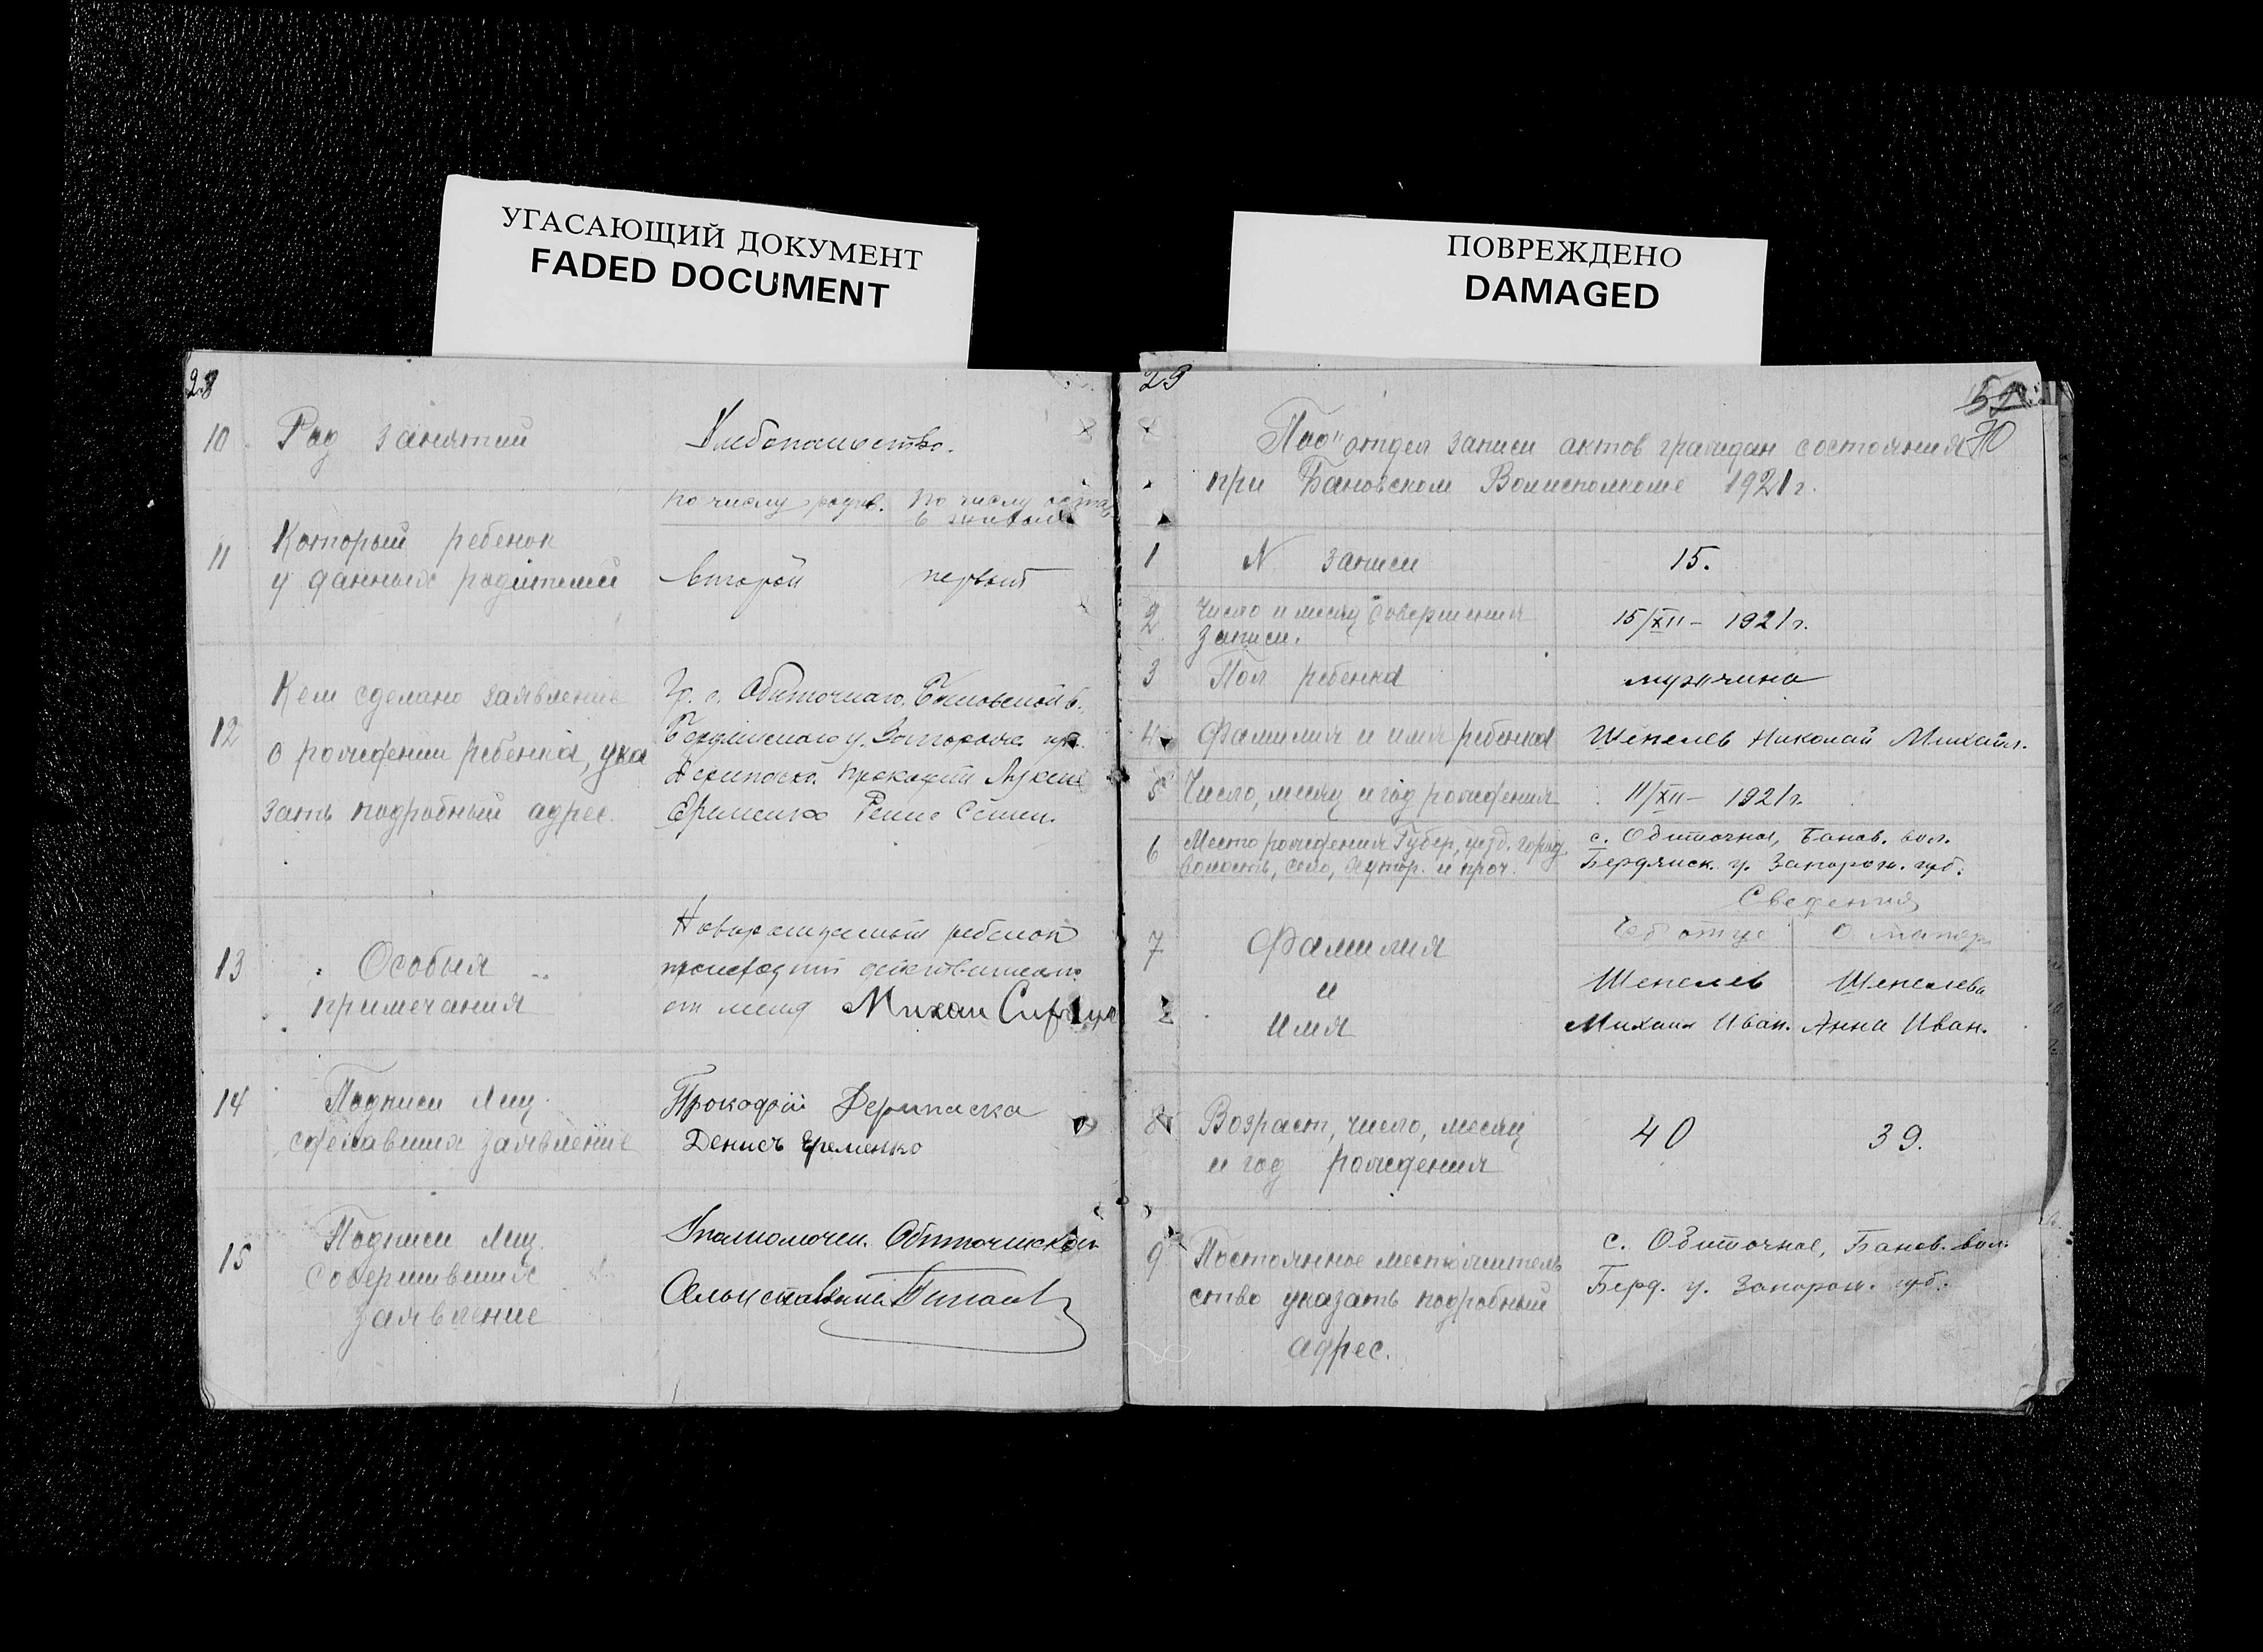 УГАСАЮЩИЙ ДОКУМЕНТ
FADED DOCUMENT
28
10 Род занятий Хлебопашество.
по числу родив. По числу остав
в живых
11 Который ребенок
у данных родителей второй первый
Кем сделано заявление Гр. с. Обиточнаго, Бановской в.
12 о рождении ребенка, ука Бердянскаго у. Запорож.
зать подробный адрес. Дерипаско Прокофий
Еременко Семен.
Новорожденный ребенок
13 Особыя происходит действительно
примечания от меня Михаил
14 Подписи лиц Прокофий Дерипаска
сделавших заявление Денисъ Еременко
15 Подписи лиц Уполномочен. Обиточнской
совершивших
заявление
ПОВРЕЖДЕНО
DAMAGED
29
52
70
Под"отдел записи актов граждан состояния
при Бановском Волисполкоме 1921 г.
1 N записи 15.
2 Число и месяц совершения
записи. 15/XII - 1921 г.
3 Пол ребенка мужчина
4 Фамилия и имя ребенка Шепелев Николай Михайл.
5 Число, месяц и год рождения 11/XII - 1921 г.
6 Место рождения Губер, уезд. город с. Обиточное, Банов. вол.
волость, село, хутор. и проч. Бердянск. у. Запорож. губ.
Сведения
Об отце О матер
7 Фамилия Шепелев Шепелева
и
Имя Михаил Иван. Анна Иван.
8 Возраст, число, месяц 40 39.
и год рождения
9 Постоянное местожитель с. Обиточное, Банов. вол.
ство указать подробный Берд. у. Запорож. губ.
адрес.